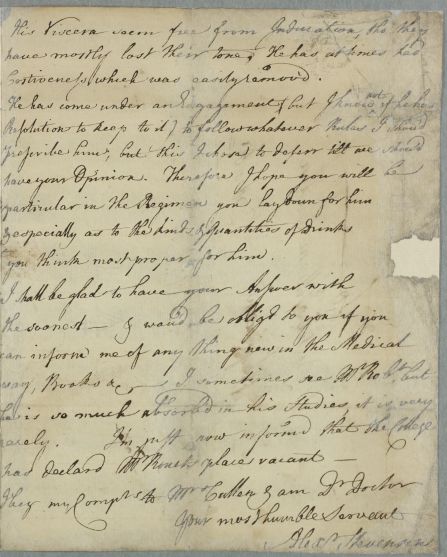 His Viscera seem free from Induration, tho they
have mostly lost their tone, He has at times had
Costiveness, which was easily removed.
He has come under an Engagement (but I know not if he has
Resolution to keep to it) to follow whatever Rules I should
prescribe him, but this I chose to deferr till we should
have your Opinion. Therefore I hope you will be
particular in the Regimen you lay Down for him
& especially as to the kinds & quantities of Drinks
you think most proper for him.
I shall be glad to have your Answer with
the soonest — & would be obligd to you if you
can inform me of any thing new in the Medical
way, Books &c — I sometimes see Mr Robt. but
he is so much absorbd in his Studies, it is very
rarely. I'm just now informd that the College
has declard Mr places vacant —
my Compts to Mrs Cullen & am Dr Doctor
Your most humble Servant
Alexr. Stevenson